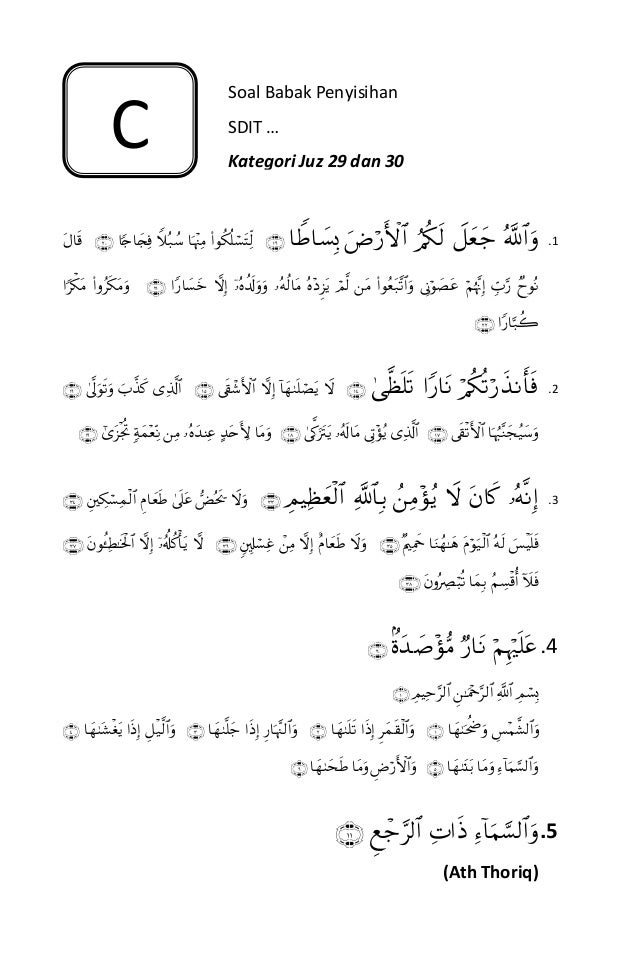 C
Soal Babak Penyisihan
SDIT ...
Kategori Juz 29 dan 30
1. وَٱللَّهُ جَعَلَ لَكُمُ ٱلْأَرْضَ بِسَاطًا ١٩ لِّتَسْلُكُوا۟ مِنْهَا سُبُلًا فِجَاجًا ٢٠ قَالَ
نُوحٌ رَّبِّ إِنَّهُمْ عَصَوْنِى وَٱتَّبَعُوا۟ مَن لَّمْ يَزِدْهُ مَالُهُۥ وَوَلَدُهُۥٓ إِلَّا خَسَارًا ٢١ وَمَكَرُوا۟ مَكْرًا
كُبَّارًا ٢٢
2. فَأَنذَرْتُكُمْ نَارًا تَلَظَّىٰ ١٤ لَا يَصْلَىٰهَآ إِلَّا ٱلْأَشْقَى ١٥ ٱلَّذِى كَذَّبَ وَتَوَلَّىٰ ١٦
وَسَيُجَنَّبُهَا ٱلْأَتْقَى ١٧ ٱلَّذِى يُؤْتِى مَالَهُۥ يَتَزَكَّىٰ ١٨ وَمَا لِأَحَدٍ عِندَهُۥ مِن نِّعْمَةٍ تُجْزَىٰٓ ١٩
3. إِنَّهُۥ كَانَ لَا يُؤْمِنُ بِٱللَّهِ ٱلْعَظِيمِ ٣٣ وَلَا يَحُضُّ عَلَىٰ طَعَامِ ٱلْمِسْكِينِ ٣٤
فَلَيْسَ لَهُ ٱلْيَوْمَ هَٰهُنَا حَمِيمٌ ٣٥ وَلَا طَعَامٌ إِلَّا مِنْ غِسْلِينٍ ٣٦ لَّا يَأْكُلُهُۥٓ إِلَّا ٱلْخَٰطِـُٔونَ ٣٧
فَلَآ أُقْسِمُ بِمَا تُبْصِرُونَ ٣٨
4. عَلَيْهِمْ نَارٌ مُّؤْصَدَةٌۢ ٢٠
بِسْمِ ٱللَّهِ ٱلرَّحْمَٰنِ ٱلرَّحِيمِ ١
وَٱلشَّمْسِ وَضُحَىٰهَا ١ وَٱلْقَمَرِ إِذَا تَلَىٰهَا ٢ وَٱلنَّهَارِ إِذَا جَلَّىٰهَا ٣ وَٱلَّيْلِ إِذَا يَغْشَىٰهَا ٤
وَٱلسَّمَآءِ وَمَا بَنَىٰهَا ٥ وَٱلْأَرْضِ وَمَا طَحَىٰهَا ٦
5. وَٱلسَّمَآءِ ذَاتِ ٱلرَّجْعِ ١١
(Ath Thoriq)